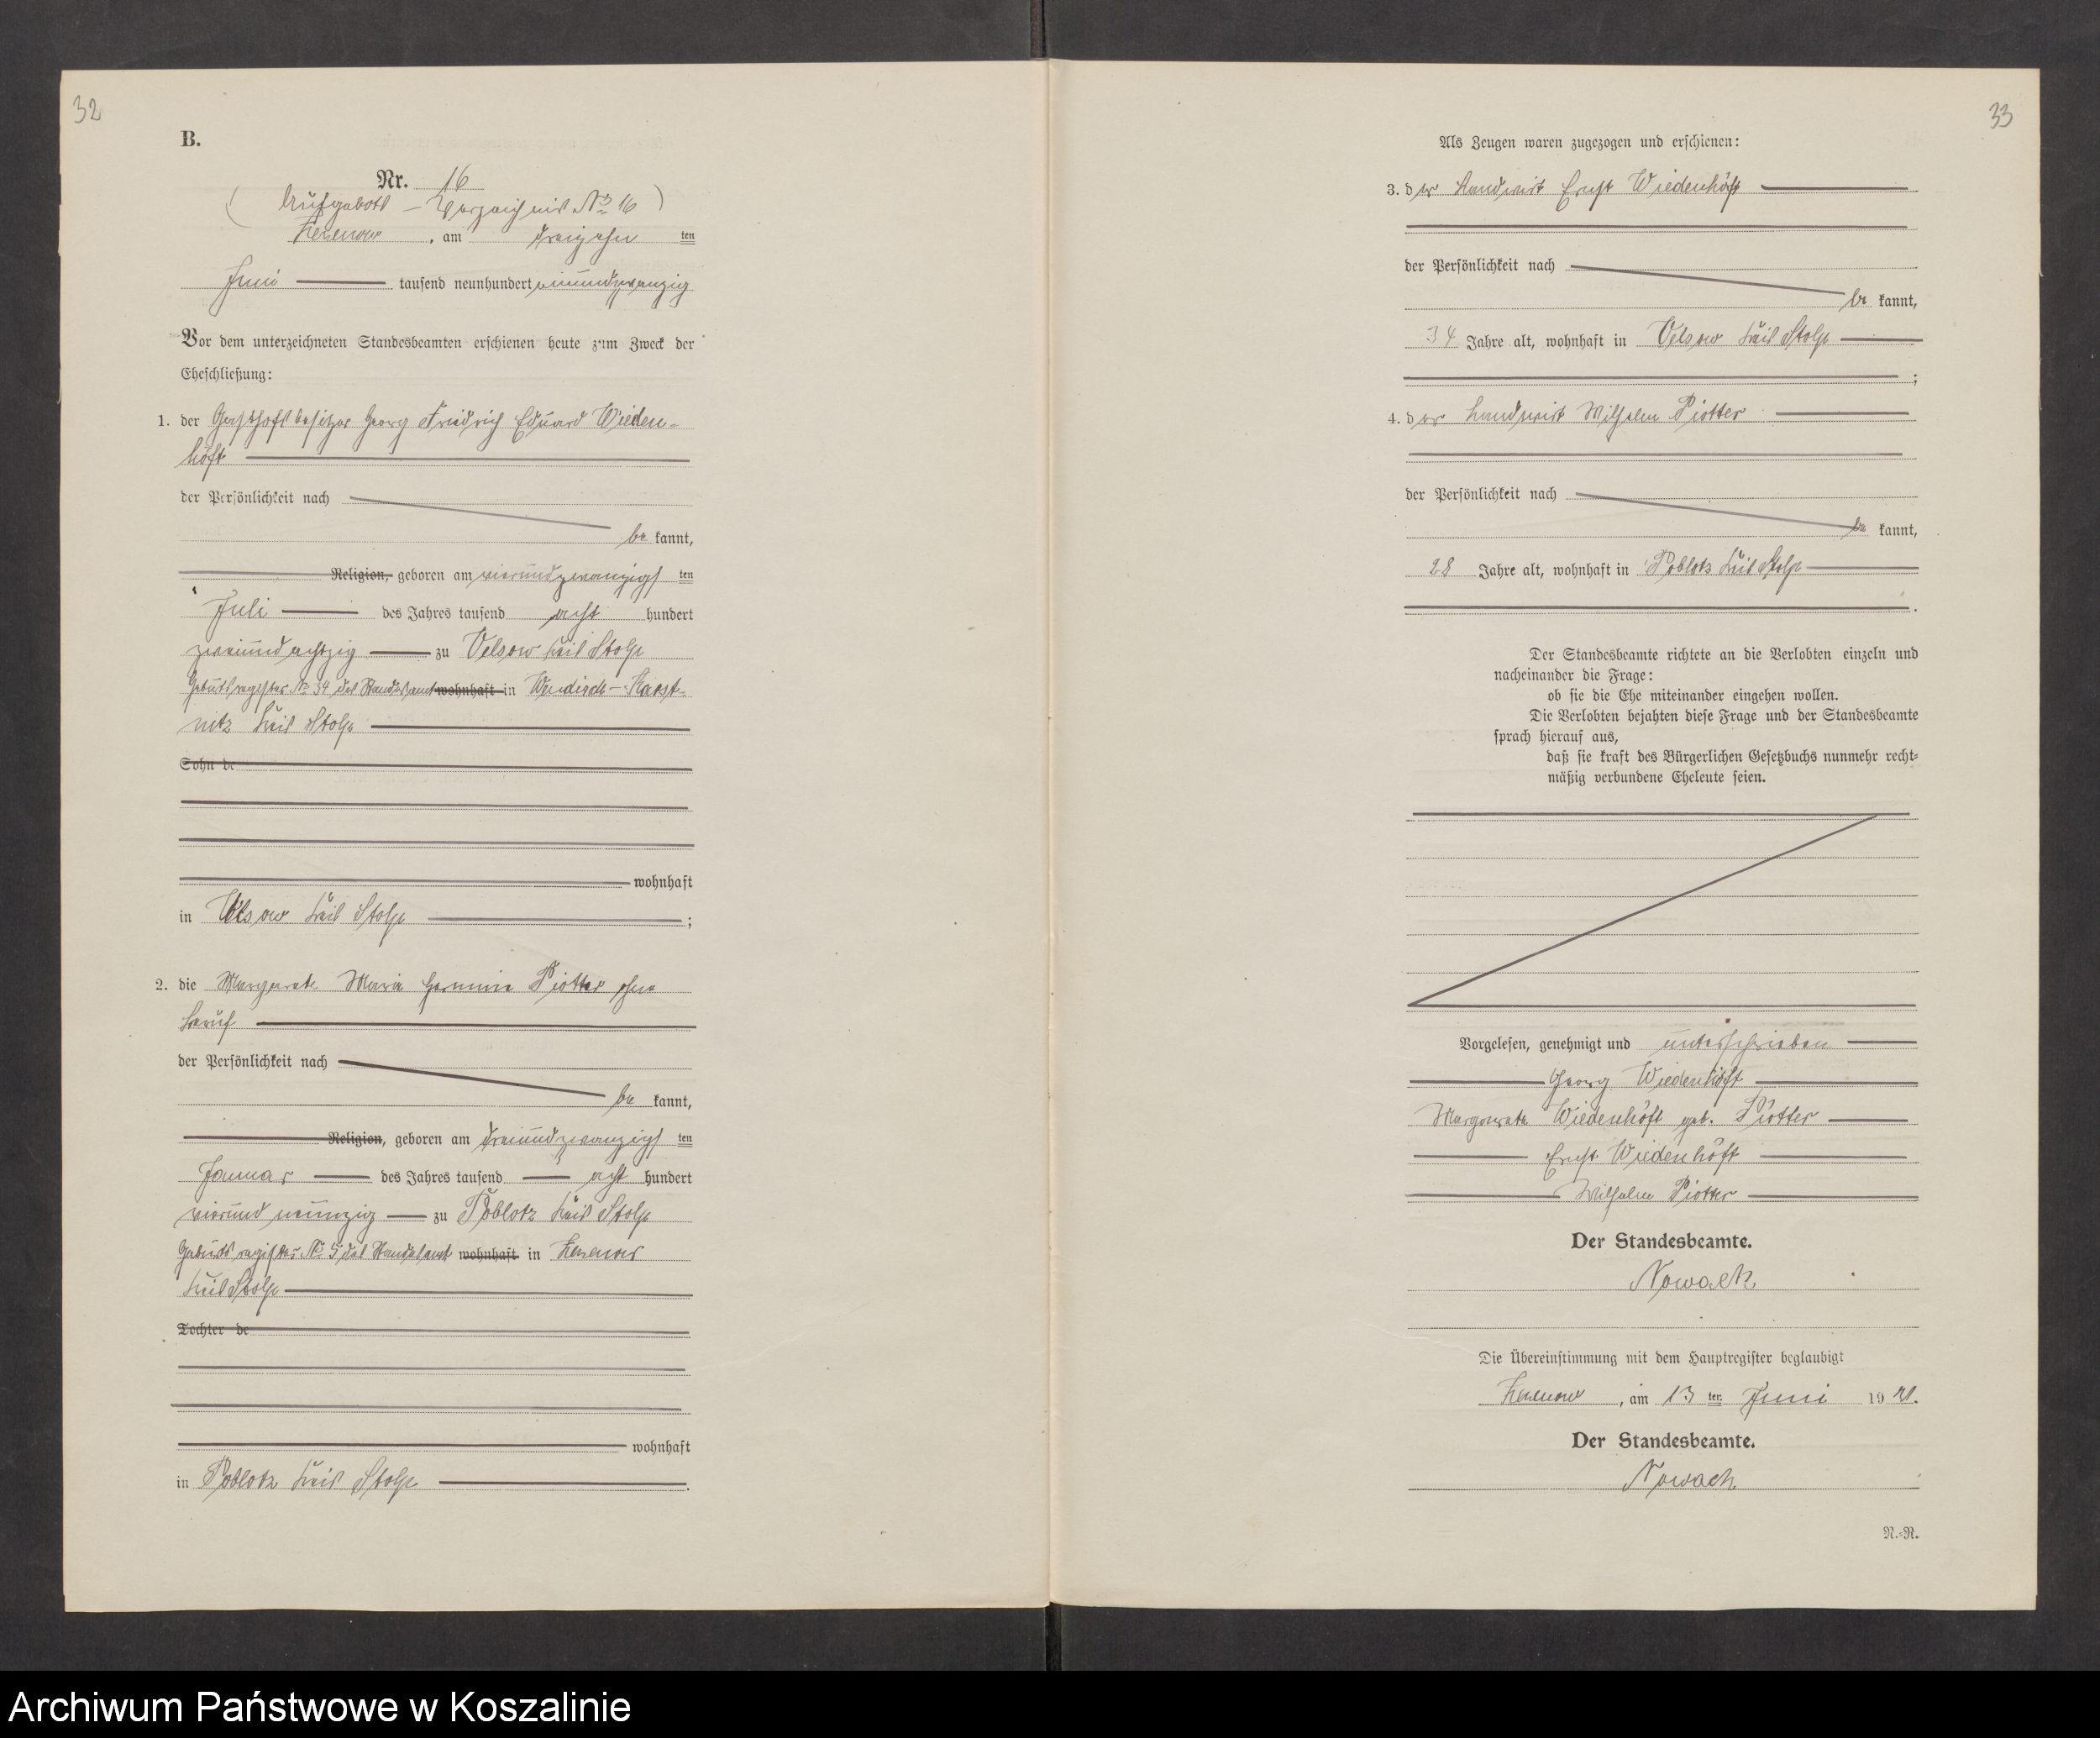 32
B.
Nr. 16
(Aufgebots-Verzeichnis No 16)
Zezenow, am dreizehn ten
Juni tausend neunhundert einundzwanzig
Vor dem unterzeichneten Standesbeamten erschienen heute zum Zweck der
Eheschließung:
1. der Gasthofsbesitzer Georg Friedrich Eduard Wieden=
höft
der Persönlichkeit nach
be kannt,
Religion, geboren am vierundzwanzigs ten
Juli des Jahres tausend acht hundert
zweiundachtzig zu Velsow Kreis Stolp
Geburtsregister No 34 des Standesamts wohnhaft in Wendisch-Karst-
nitz Kreis Stolp
Sohn de
wohnhaft
in Velsow Kreis Stolp ;
2. die Margarete Maria Hermine Piotter ohne
Beruf
der Persönlichkeit nach
be kannt,
Religion, geboren am dreiundzwanzigs ten
Januar des Jahres tausend acht hundert
vierundneunzig zu Poblotz Kreis Stolp
Geburtsregister No 5 des Standesamts wohnhaft in Zezenow
Kreis Stolp
Tochter de
wohnhaft
in Poblotz Kreis Stolp .
33
Als Zeugen waren zugezogen und erschienen:
3. der Landwirt Ernst Wiedenhöft
der Persönlichkeit nach
be kannt,
34 Jahre alt, wohnhaft in Velsow Kreis Stolp
;
4. der Landwirt Wilhelm Piotter
der Persönlichkeit nach
be kannt,
28 Jahre alt, wohnhaft in Poblotz Kreis Stolp
.
Der Standesbeamte richtete an die Verlobten einzeln und
nacheinander die Frage:
ob sie die Ehe miteinander eingehen wollen.
Die Verlobten bejahten diese Frage und der Standesbeamte
sprach hierauf aus,
daß sie kraft des Bürgerlichen Gesetzbuchs nunmehr recht=
mäßig verbundene Eheleute seien.
Vorgelesen, genehmigt und unterschrieben
Georg Wiedenhöft
Margarete Wiedenhöft geb. Piotter
Ernst Wiedenhöft
Wilhelm Piotter
Der Standesbeamte.
Nowack
Die Übereinstimmung mit dem Hauptregister beglaubigt
Zezenow, am 13 ten Juni 1921.
Der Standesbeamte.
Nowack
N.=R.
Archiwum Państwowe w Koszalinie